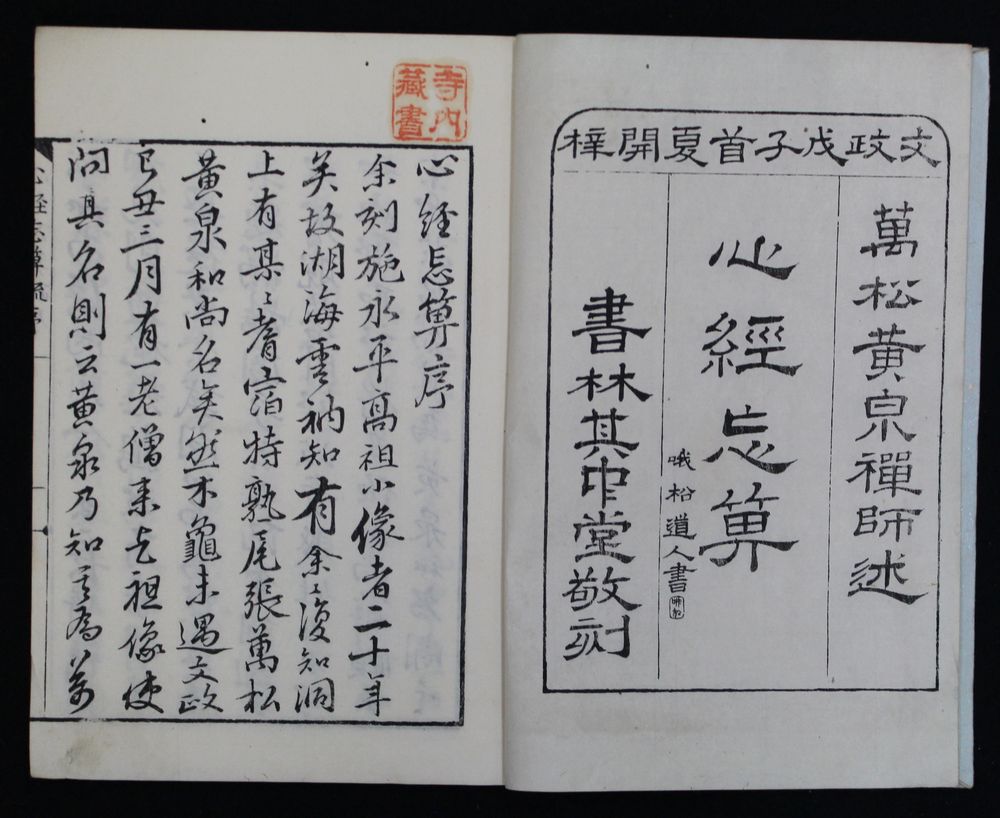 文政戊子首夏開梓
萬松黄泉禪師述
心經忘算
哦松道人書
書林其中堂敬刻
寺内
藏書
心經忘算序
余刻施永平高祖小像者二十年
矣故湖海雲衲知有余〻復知洞
上有某〻耆宿特熟尾張萬松
黄泉和尚名矣然木龜未遇文政
己丑三月有一老僧来乞祖像使
問其名則云黄泉乃知其為萬